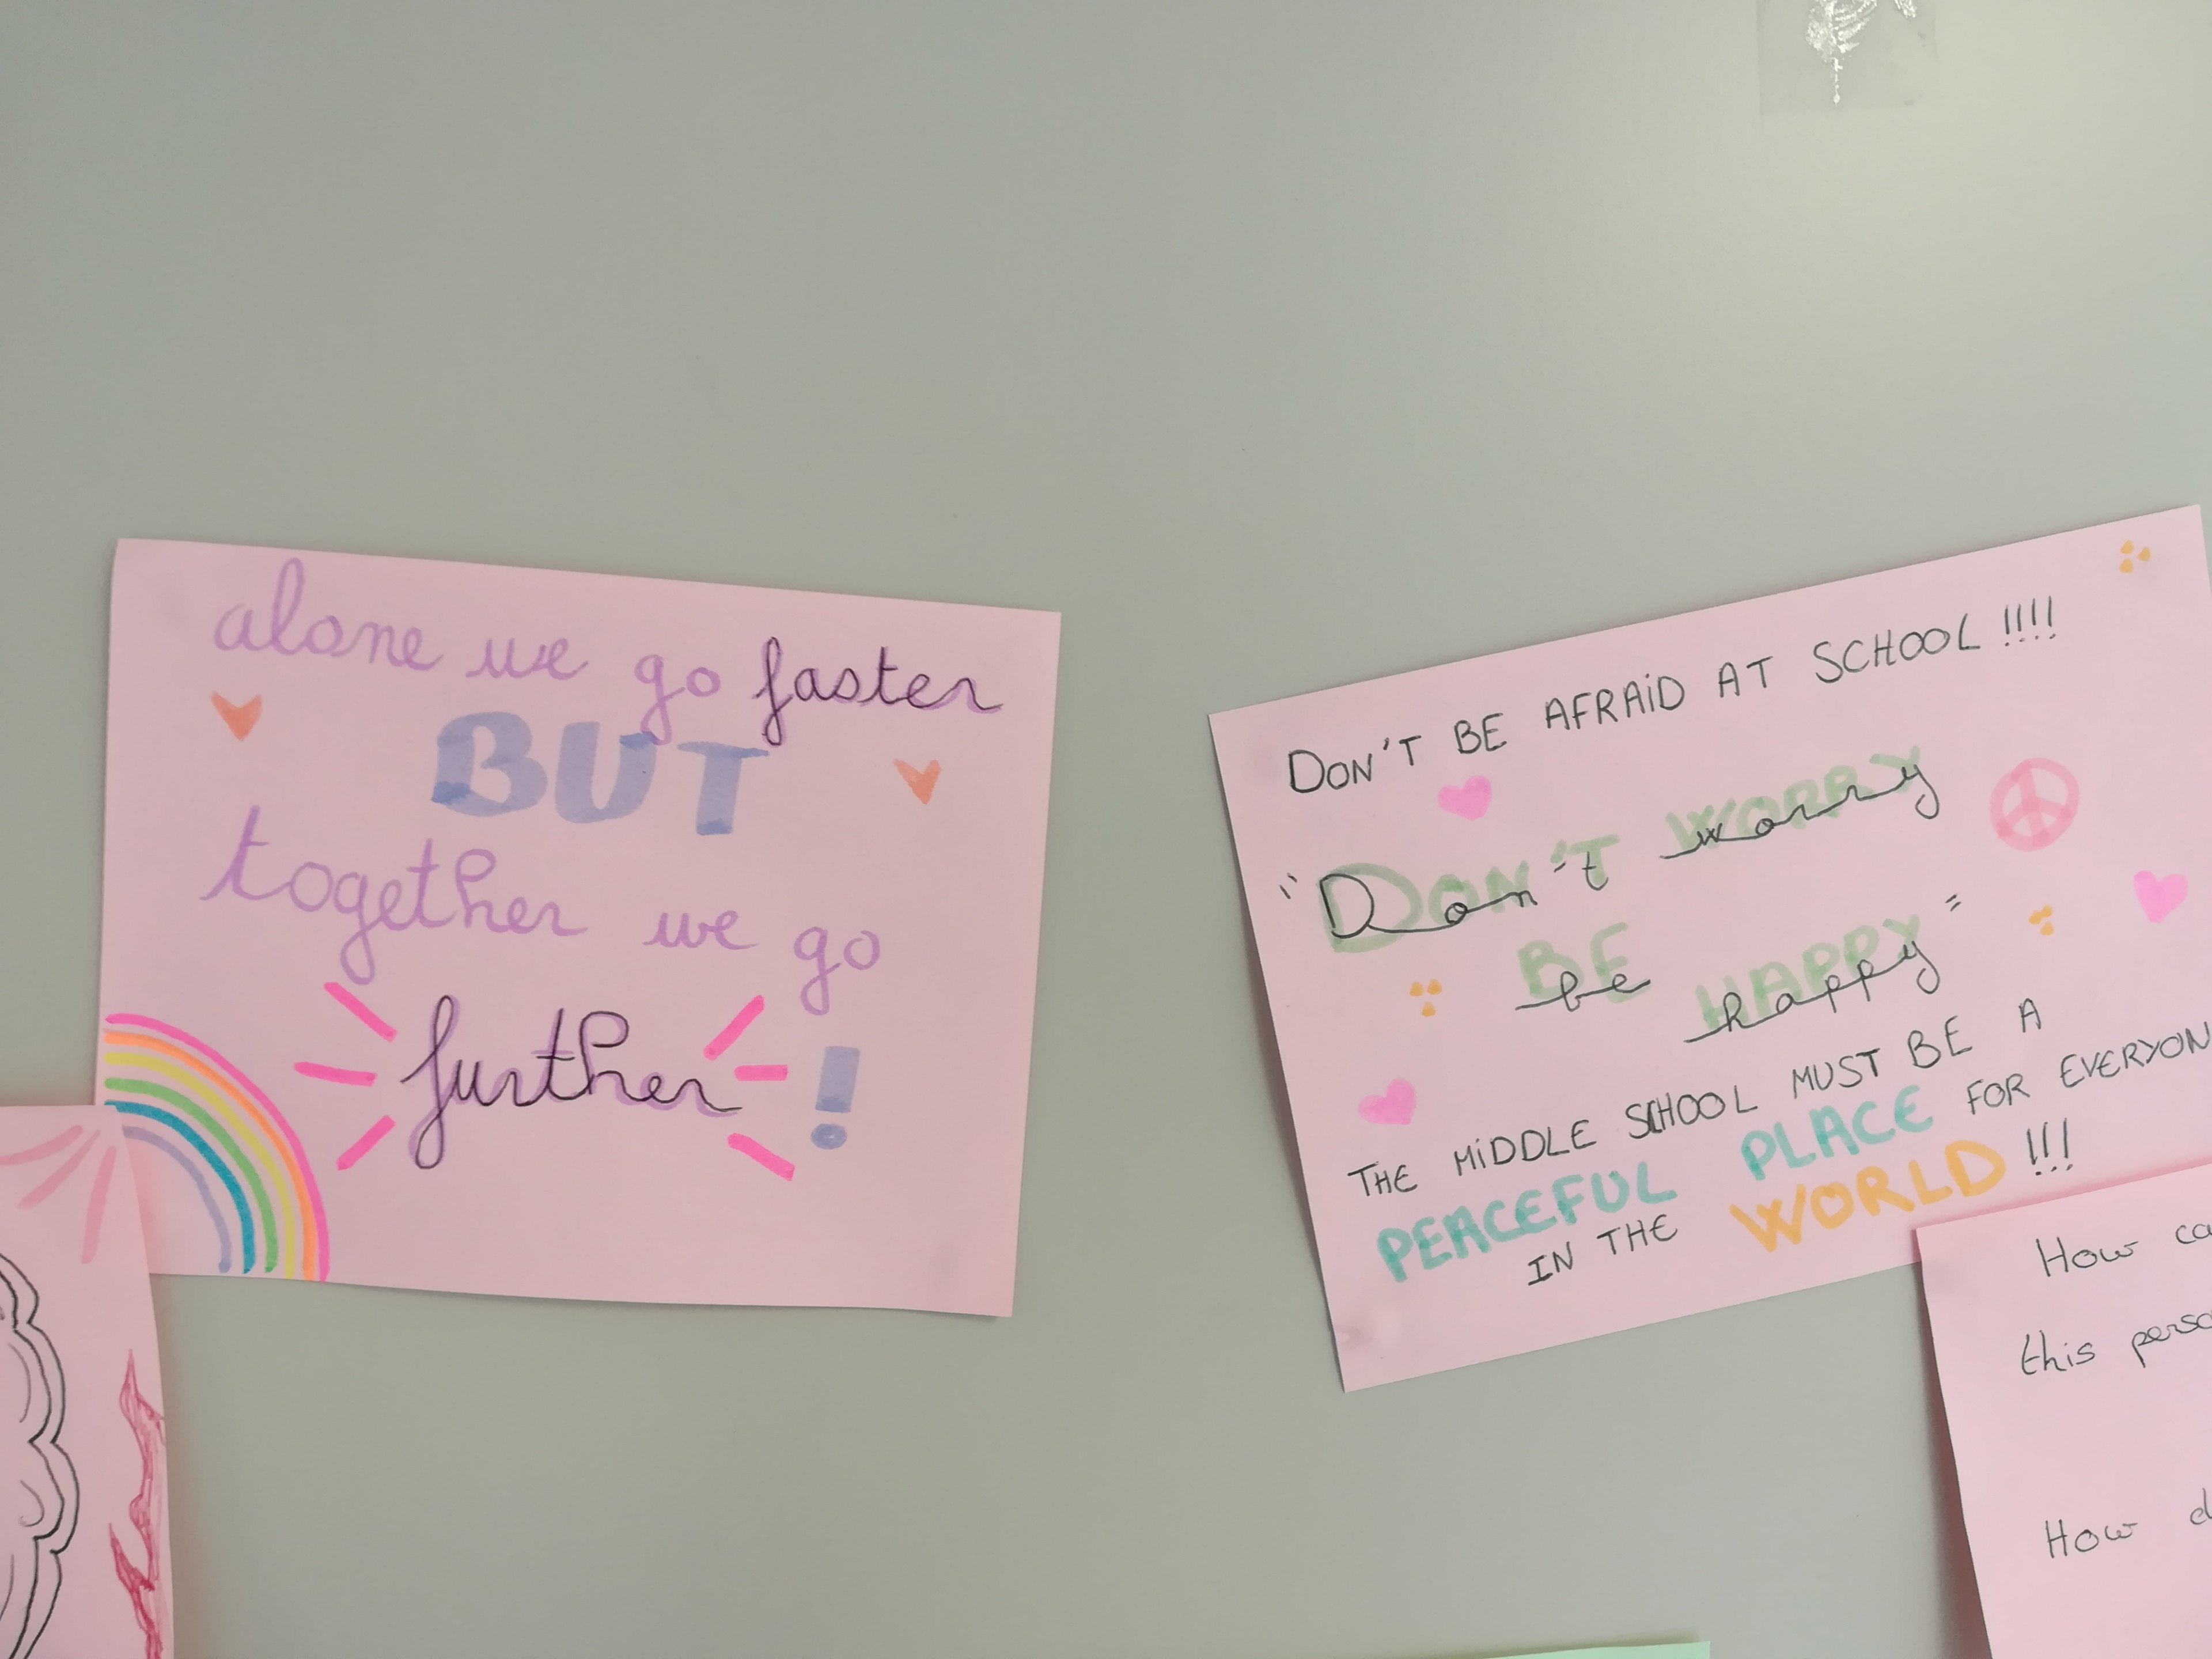 alone we go faster
BUT
together we go
further !
DON'T BE AFRAID AT SCHOOL !!!!
"Don't worry
be happy"
THE MIDDLE SCHOOL MUST BE A
PEACEFUL PLACE FOR EVERYON
IN THE WORLD !!!
How
this
How